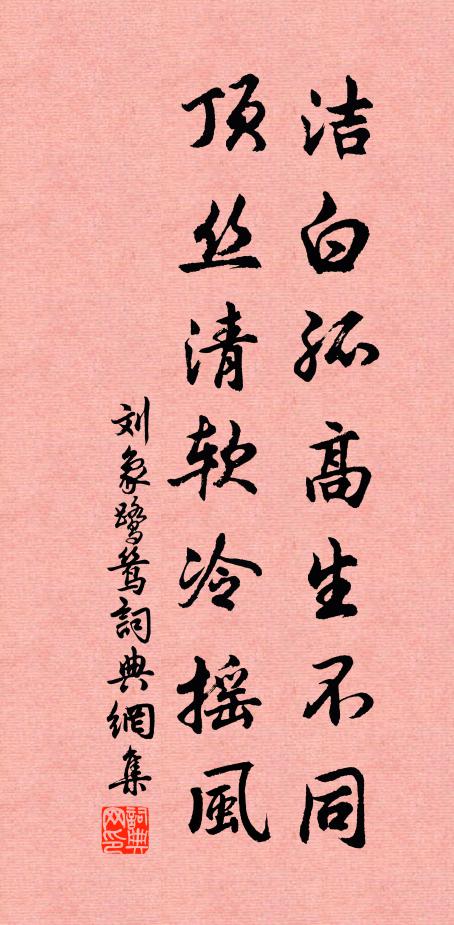 洁白孤高生不同
顶丝清软冷摇風
刘象鹭鸶詞典網集
詞典网印